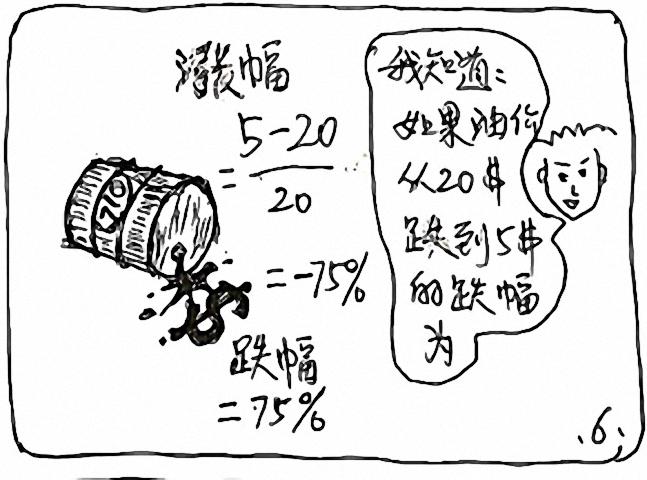 涨幅
= 5-20
20
= -75%
跌幅
= 75%
我知道:
如果油价
从20$
跌到5$
的跌幅
为
OIL
.6.